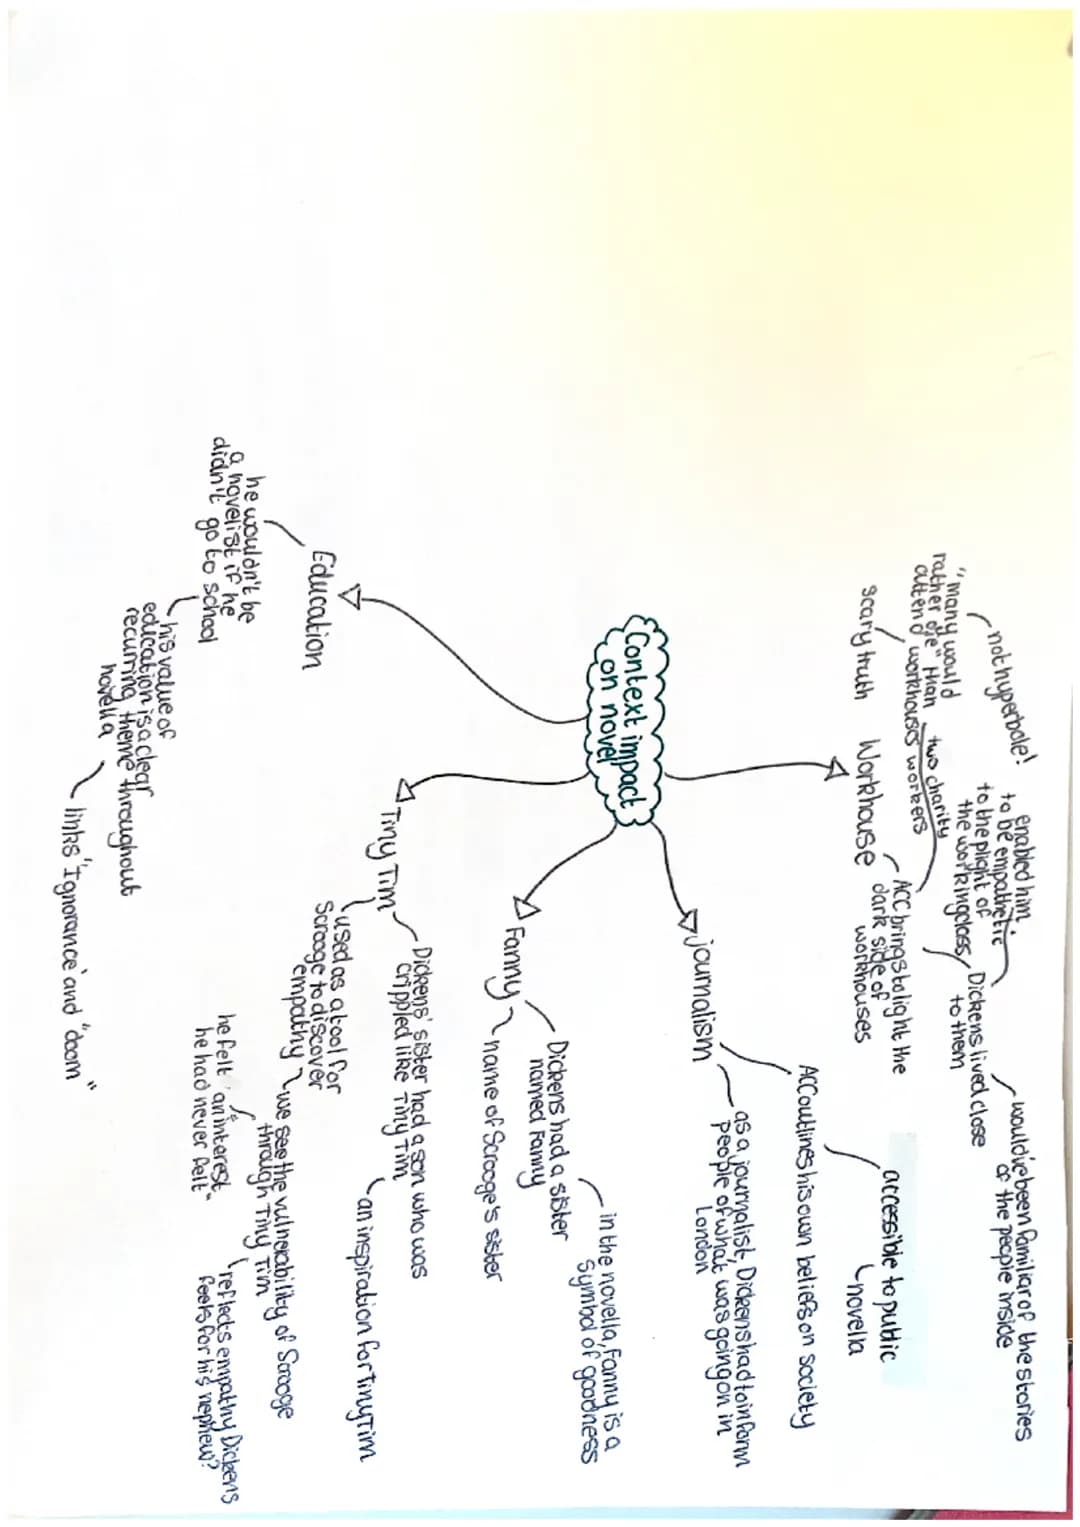 Context impact
on novel
Workhouse
scary truth
"many would
rather die" than
attend workhouses
not hyperbole!
two charity
workers
ACC brings to light the
dark side of
workhouses
enabled him
to be empathetic
to the plight of
the working class
Dickens lived close
to them
would've been familiar of the stories
of the people inside
journalism
ACC outlines his own beliefs on society
accessible to public
novella
as a journalist, Dickens had to inform
people of what was going on in
London
Fanny
Dickens had a sister
named Fanny
in the novella, Fanny is a
symbol of goodness
name of Scrooge's sister
Tiny Tim
Dickens' sister had a son who was
crippled like Tiny Tim
an inspiration for Tiny Tim
used as a tool for
Scrooge to discover
empathy
we see the vulnerability of Scrooge
through Tiny Tim
he felt 'an interest
he had never felt"
reflects empathy Dickens
feels for his nephew?
Education
he wouldn't be
a novelist if he
didn't go to school
his value of
education is a clear
recurring theme throughout
novella
links "Ignorance' and "doom"